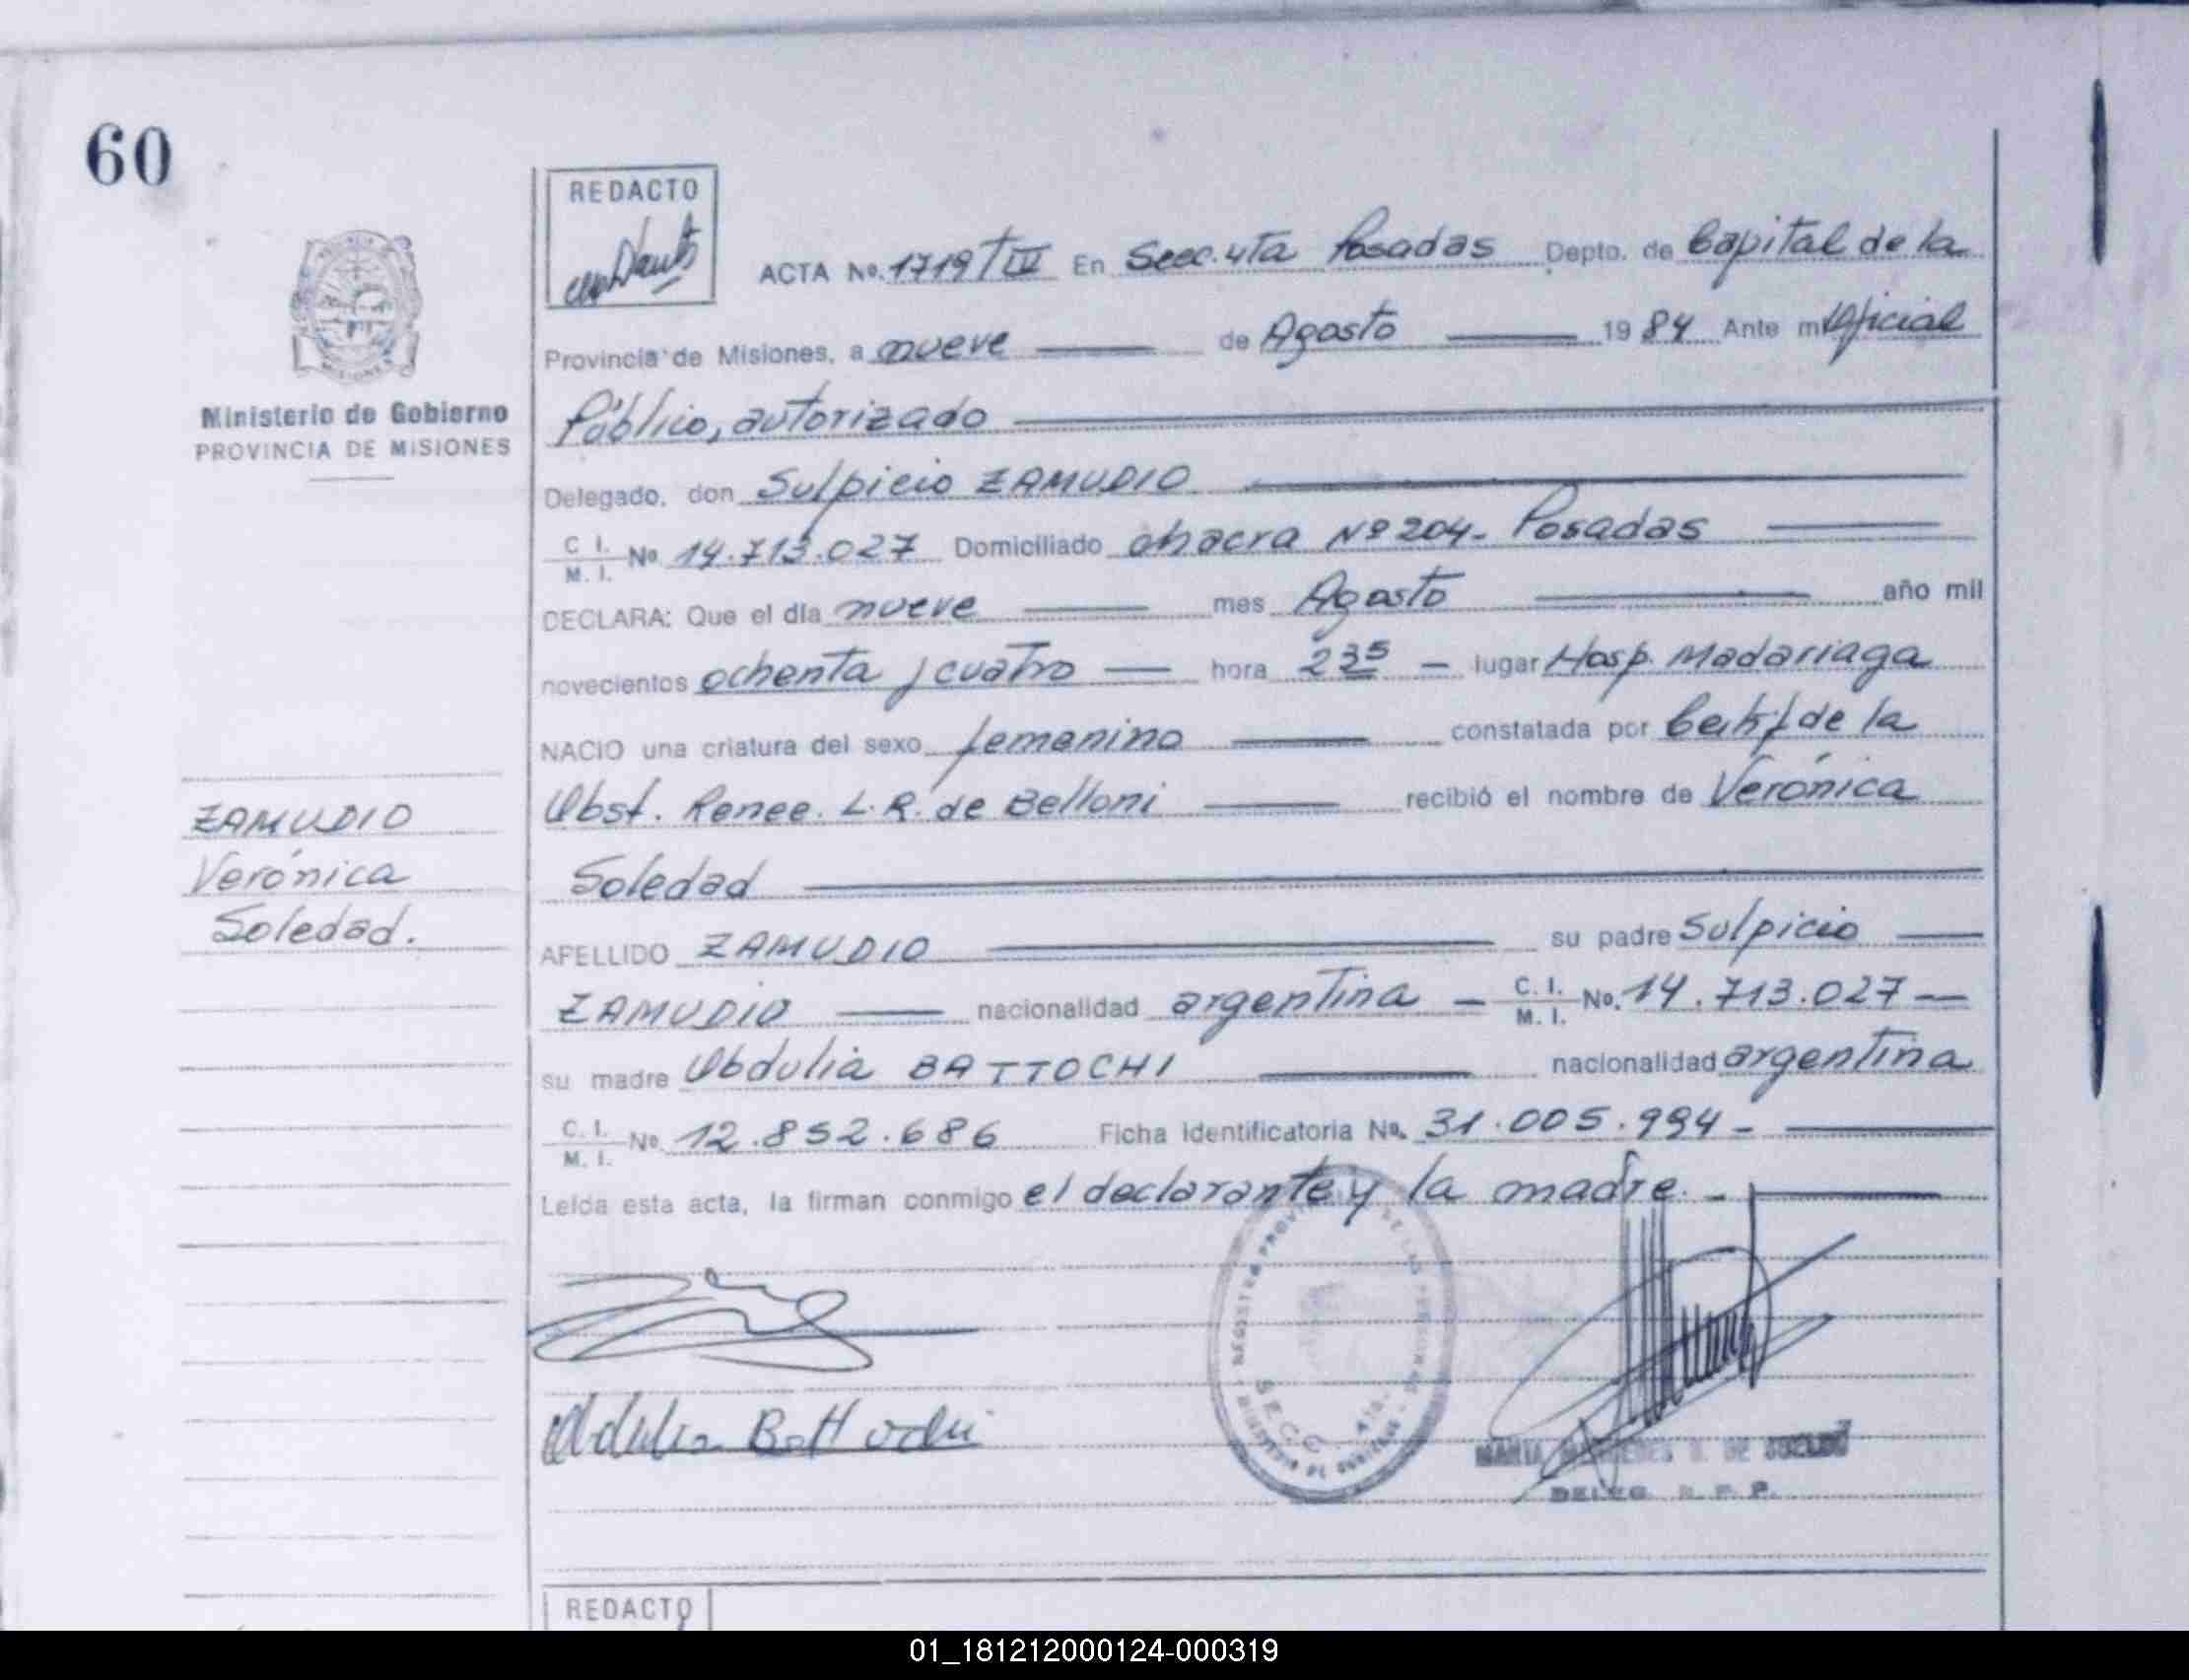 60
REDACTO
ACTA No. 1719/IV En Secc. 4ta Posadas Depto. de Capital de la
Provincia de Misiones, a nueve de Agosto 1984 Ante mi Oficial
Público, autorizado
Delegado, don Sulpicio ZAMUDIO
C I. M. I. No. 14.713.027 Domiciliado chacra Nº 204- Posadas
DECLARA: Que el día nueve mes Agosto año mil
novecientos ochenta y cuatro hora 23⁵ lugar Hosp. Madariaga
NACIO una criatura del sexo femenino constatada por Certif de la
Obst. Renee. L. R. de Belloni recibió el nombre de Verónica
Soledad
APELLIDO ZAMUDIO su padre Sulpicio
ZAMUDIO nacionalidad argentina C. I. M. I. No. 14.713.027
su madre Obdulia BATTOCHI nacionalidad argentina
C. I. M. I. No. 12.852.686 Ficha identificatoria No. 31.005.994-
Leída esta acta, la firman conmigo el declarante y la madre.-
Ministerio de Gobierno
PROVINCIA DE MISIONES
ZAMUDIO
Verónica
Soledad.
Obdulia Battochi
MARIA DE
DELEG. R. P. P.
REDACTO
01_181212000124-000319